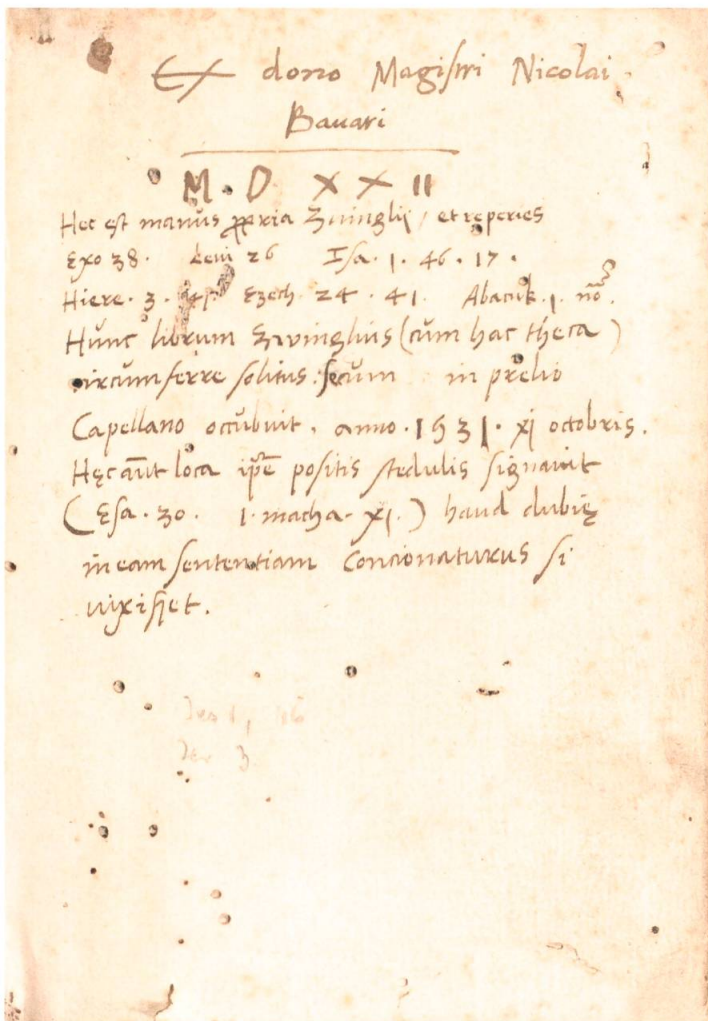 Ex dono Magistri Nicolai
Bavari
M. D XXII
Hec est manus ꝓpria Zuinglij, et reperies
Exo 38. Leui 26 Isa. 1. 46. 17.
Hiere. 3. Ezech. 24. 41. Abacuk. 1.
Hunc librum Zwinglius (cum hac theca)
circumferre solitus secum in prelio
Capellano occubuit, anno. 1531. xj octobris.
Hęc aūt loca ip̄e positis scedulis signauit
(Esa. 30. 1. macha. xj.) haud dubię
in eam sententiam Concionaturus si
uixisset.
Jes 1, 46
Jer 3